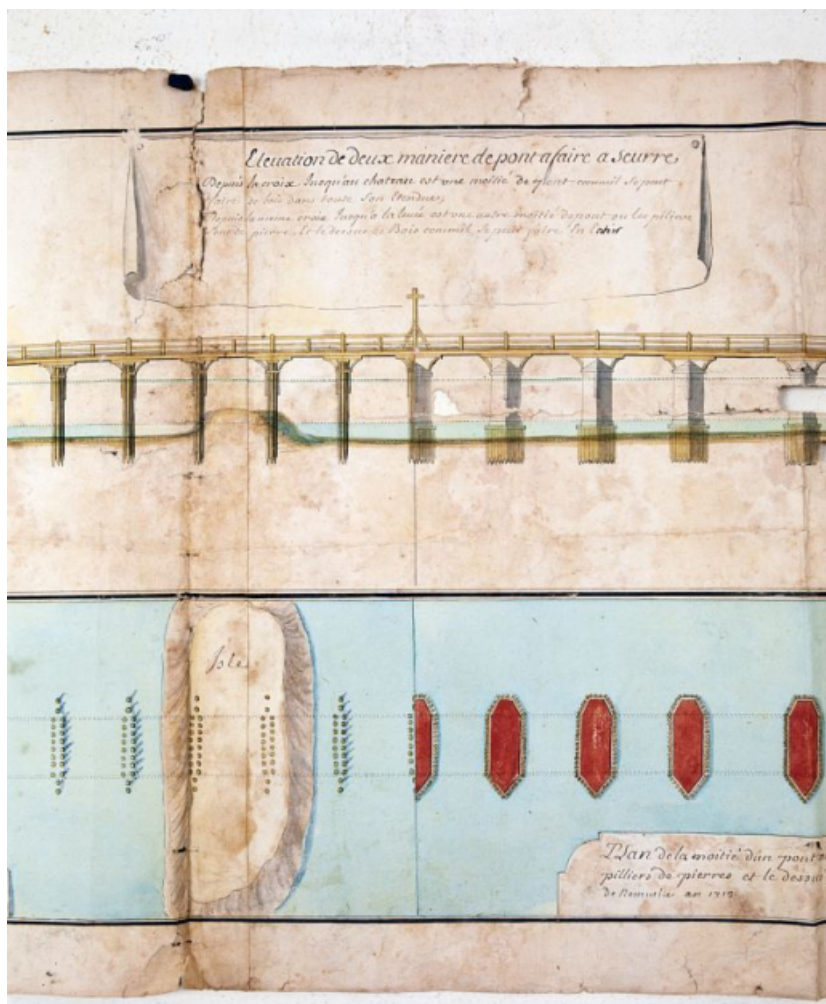 Eleuation de deux maniere de pont a faire a Seurre,
Depuis la croix Jusqu'au chateau est une moitié de pont comme il se peut
faire de bois dans toute son Etendue,
Depuis la meme croix Jusqu'a la leuée est une autre moitié de pont ou les piliers
sont de pierre, Et le dessus de Bois comme il se peut faire En
Isle
Plan de la moitié d'un pont
pilliers de pierres et le dessu
de an 1717